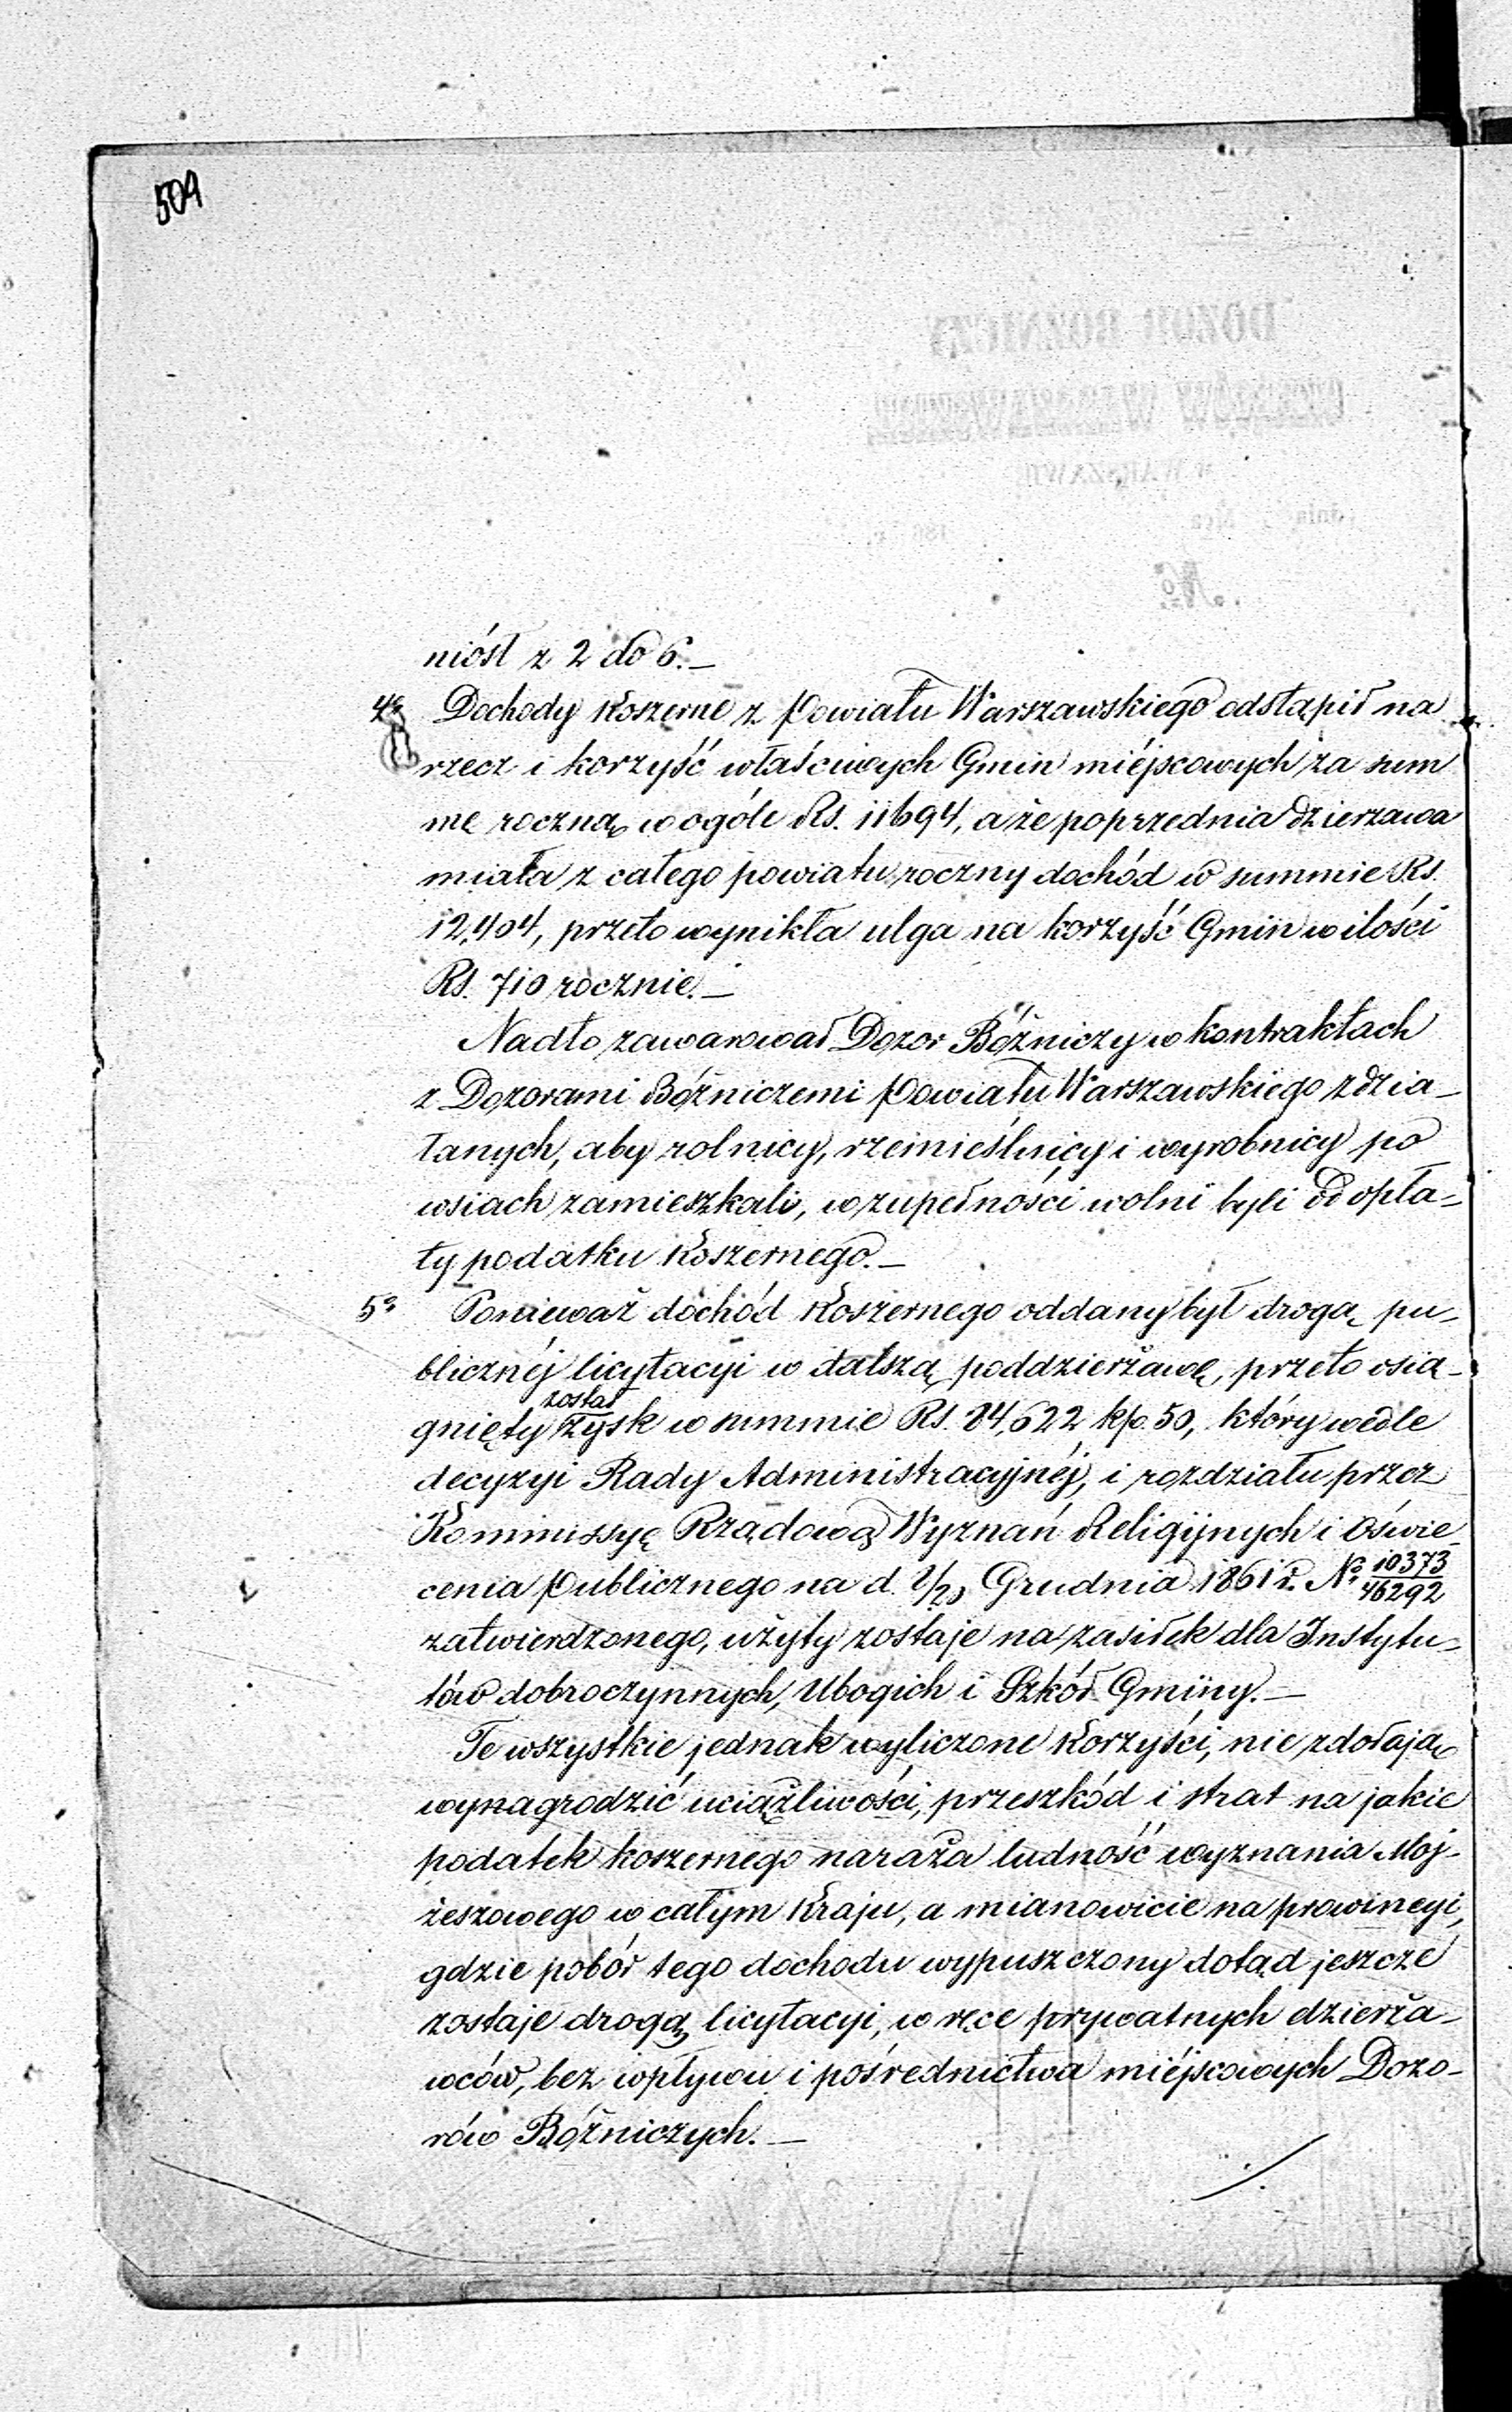 504
niósł z 2 do 6.—
4º Dochody koszerne z Powiatu Warszawskiego odstąpił na
rzecz i korzyść właściwych Gmin miéjscowych za sum
mę roczną w ogóle Rs. 11694, a że poprzednia dzierzawa
miała z całego powiatu roczny dochód w summie Rs.
12,404, przeto wynikła ulga na korzyść Gmin w ilości
Rs. 710 rocznie.—
Nadto zawarował Dozor Bóżniczy w kontraktach
z Dozorami Bóżniczemi Powiatu Warszawskiego zdzia-
łanych, aby rolnicy, rzemieślnicy i wyrobnicy po
wsiach zamieszkali, w zupełności wolni byli od opła-
ty podatku koszernego.—
5º Ponieważ dochód koszernego oddany był drogą pu-
blicznéj licytacyi w dalszą poddzierżawę, przeto osią-
został
gnięty zysk w summie Rs. 84,622 kp. 50, który wedle
decyzyi Rady Administracyjnéj, i rozdziału przez
Kommissyę Rządową Wyznań Religijnych i Oświe
cenia Publicznego na d. Grudnia 1861 r. Nº 10373/46292
zatwierdzonego, użyty zostaje na zasiłek dla Instytu-
tów dobroczynnych, Ubogich i Szkół Gminy.—
Te wszystkie jednak wyliczone korzyści, nie zdołają
wynagrodzić uciążliwości, przeszkód i strat na jakie
podatek koszernego naraża ludność wyznania Moj-
żeszowego w całym Kraju, a mianowicie na prowincyi,
gdzie pobór tego dochodu wypuszczony dotąd jeszcze
zostaje drogą licytacyi, w ręce prywatnych dzierża-
wców, bez wpływu i pośrednictwa miéjscowych Dozo-
rów Bóżniczych.—